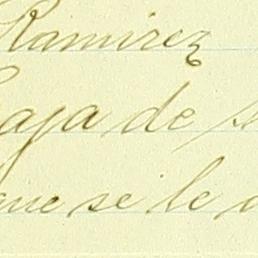 Ramirez
Caja de
que se le